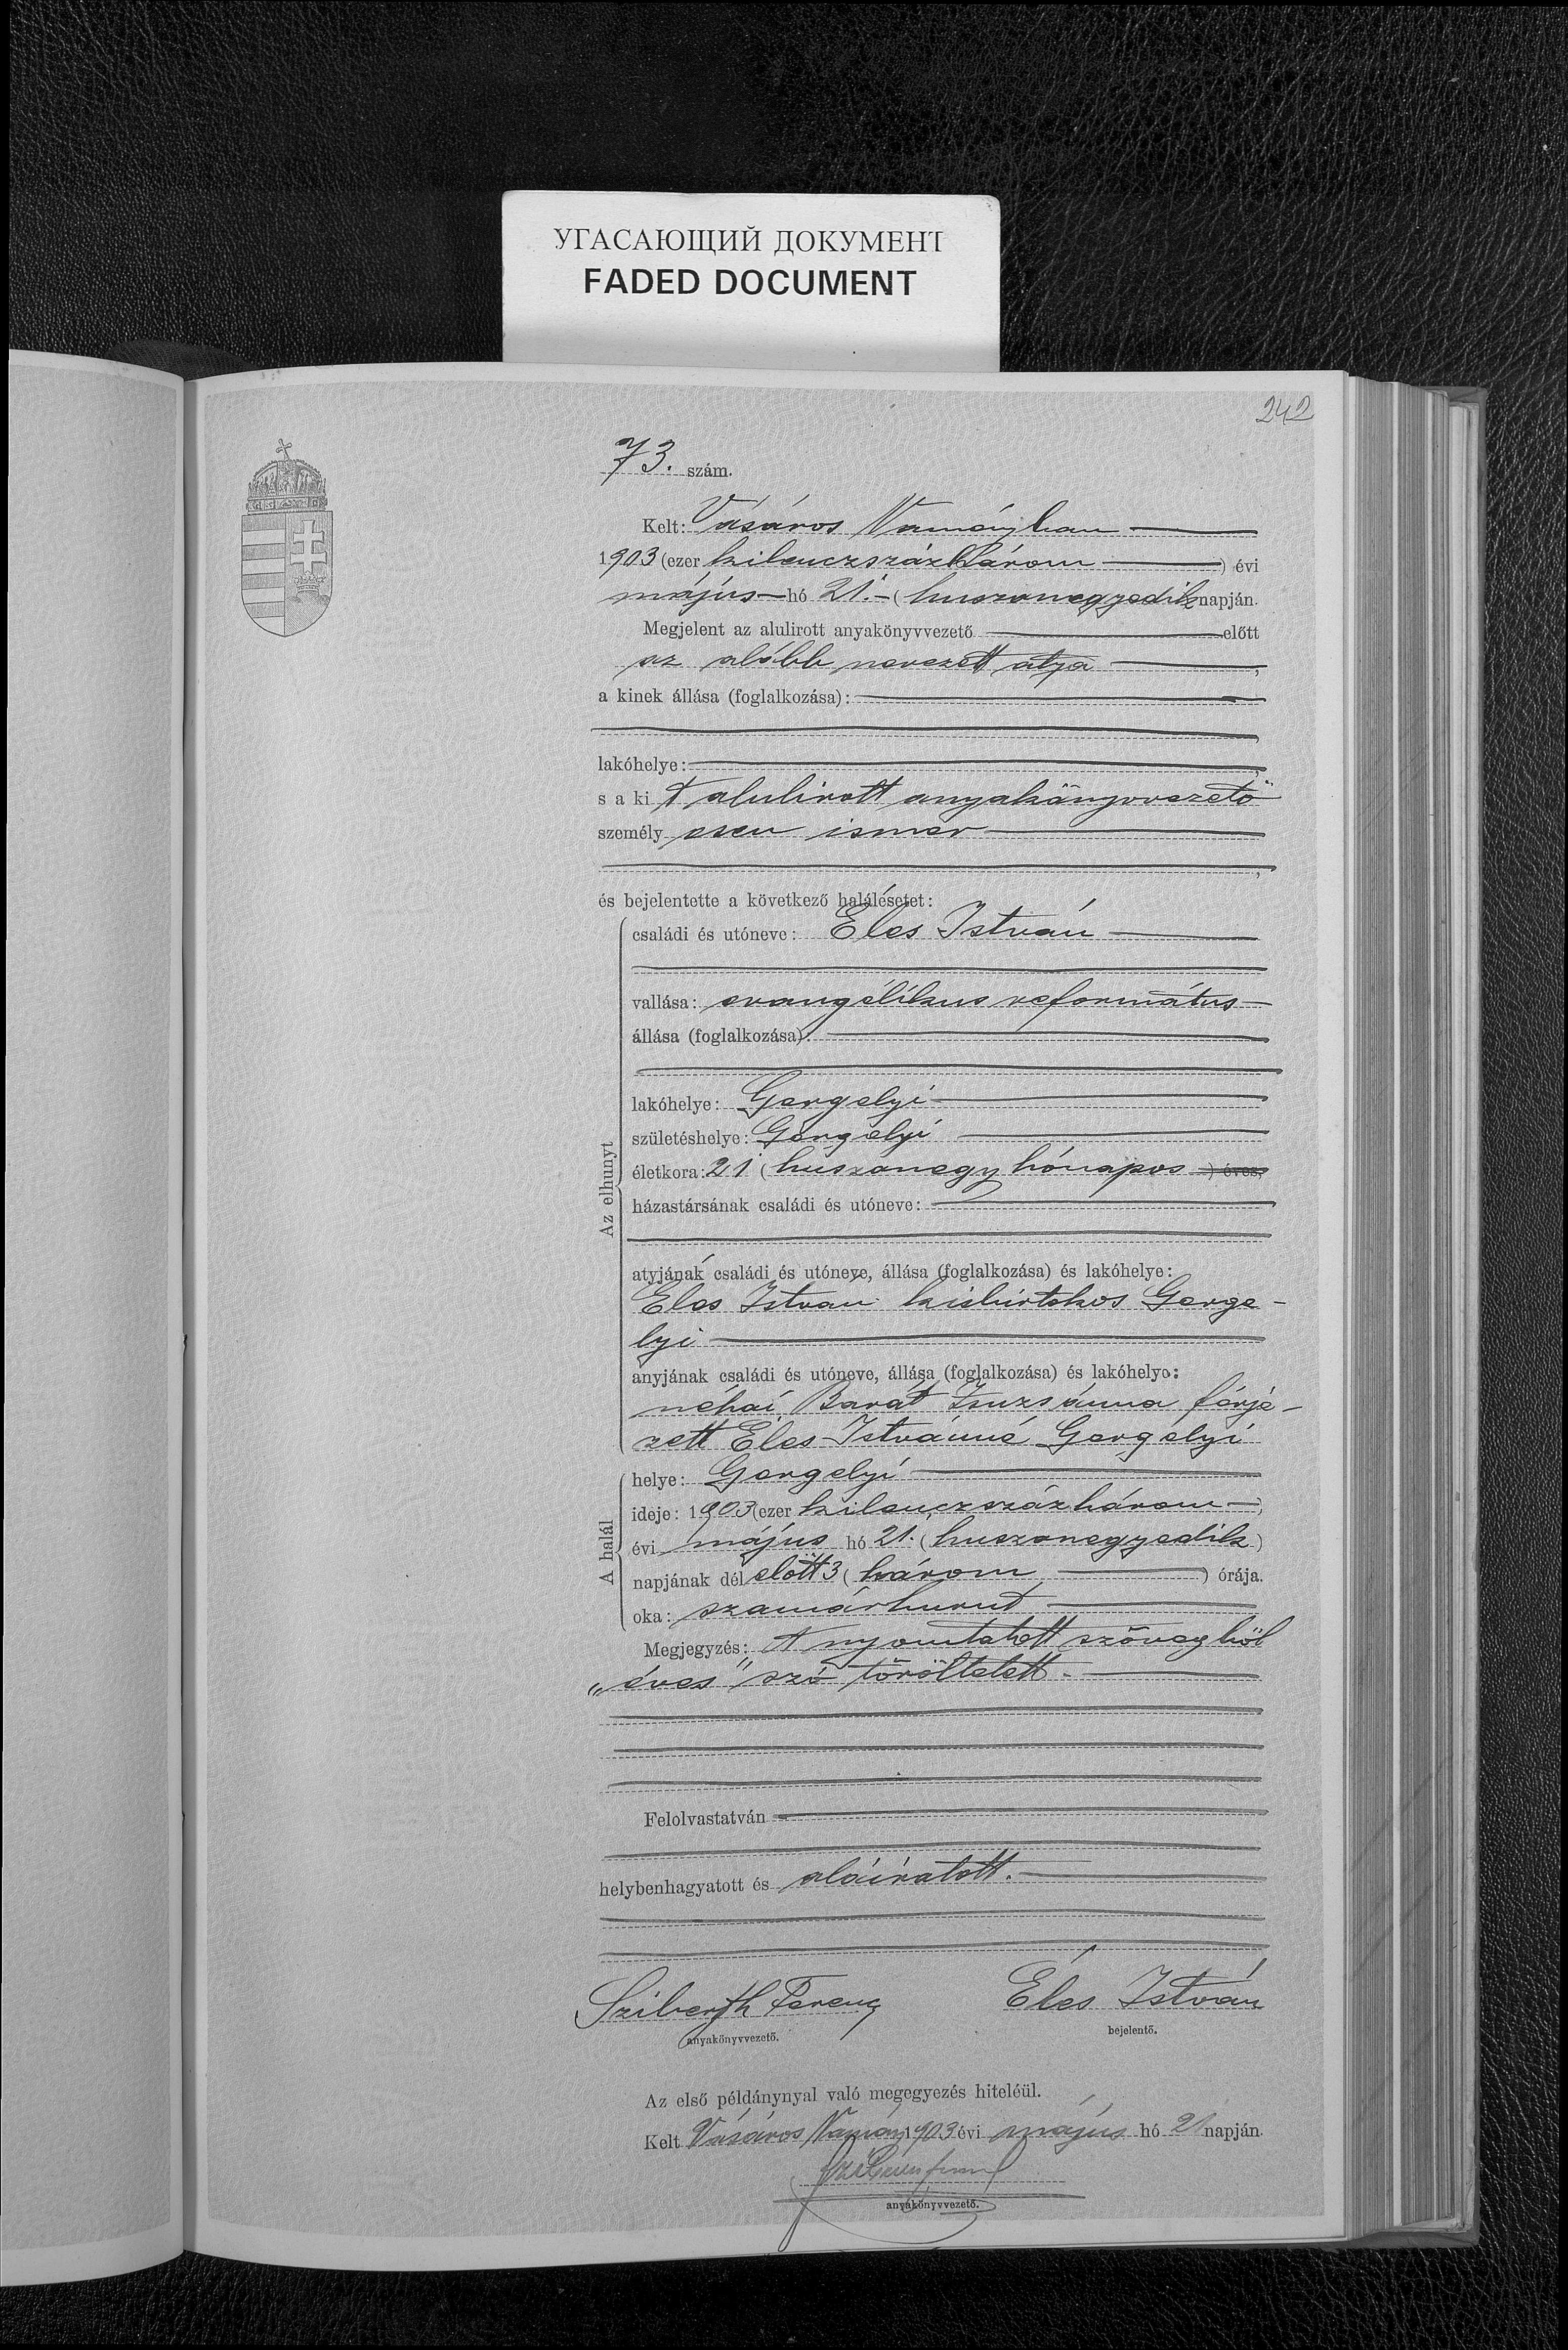 УГАСАЮЩИЙ ДОКУМЕНТ
FADED DOCUMENT
242
73. szám.
Kelt: Vásáros Naményban
1903 (ezer kilenczszázhárom ) évi
május hó 21. ( huszonegyedik napján.
Megjelent az alulirott anyakönyvvezető előtt
az alább nevezett atya ,
a kinek állása (foglalkozása):
lakóhelye:
s a ki t alulirott anyakönyvvezető
személy esen ismer
és bejelentette a következő halálesetet:
Az elhunyt
családi és utóneve: Eles István
vallása: evangélikus református
állása (foglalkozása):
lakóhelye: Gergelyi
születéshelye: Gergelyi
életkora: 21 ( huszonegy hónapos ) éves,
házastársának családi és utóneve:
atyjának családi és utóneve, állása (foglalkozása) és lakóhelye:
Eles István kisbirtokos Gerge-
lyi
anyjának családi és utóneve, állása (foglalkozása) és lakóhelye:
néhai Barát Zsuzsánna férje-
zett Éles Istvánné Gergelyi
A halál
helye: Gergelyi
ideje: 1903 (ezer kilenczszázhárom )
évi május hó 21. ( huszonegyedik )
napjának dél előtt 3 ( három ) órája.
oka: szamárhurut
Megjegyzés: A nyomtatott szövegből
„éves" szó töröltetett.
Felolvastatván
helybenhagyatott és aláiratott.
Sziberth Ferencz Éles István
anyakönyvvezető. bejelentő.
Az első példánynyal való megegyezés hiteléül.
Kelt Vásáros Namény 1903 évi május hó 21 napján.
anyakönyvvezető.